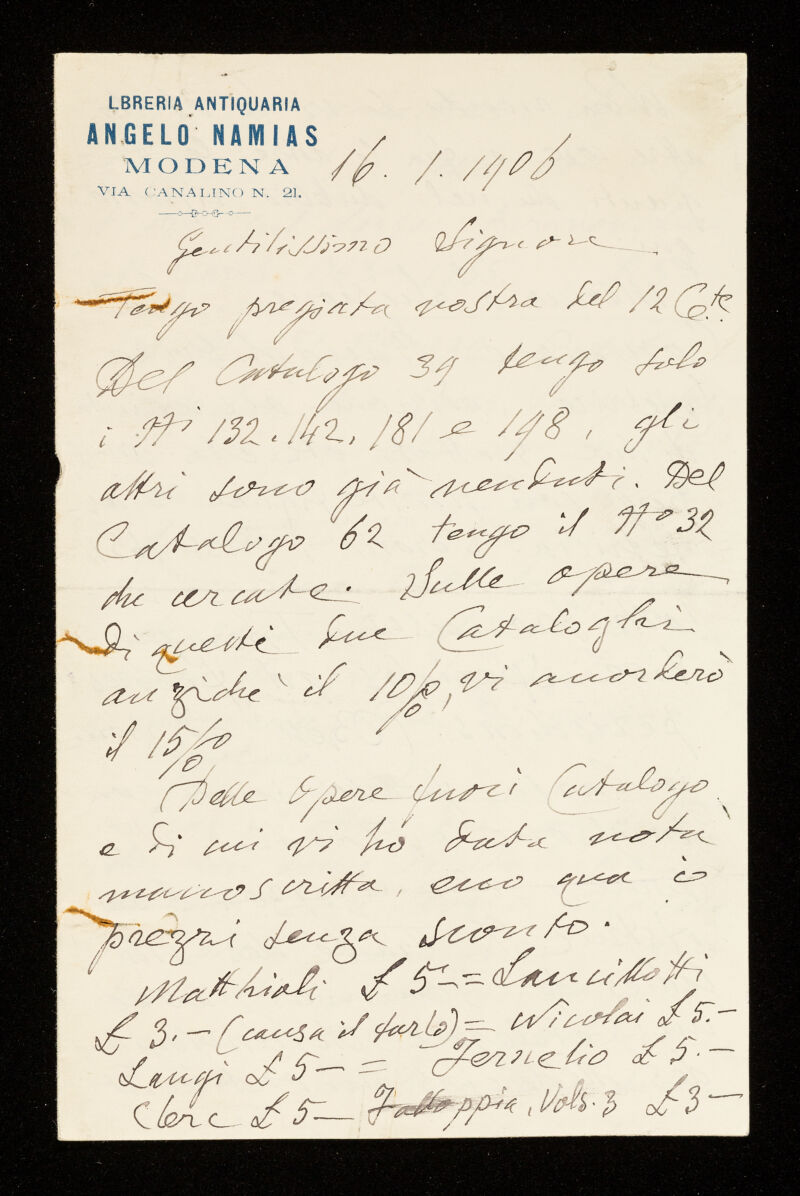 LBRERIA ANTIQUARIA
ANGELO NAMIAS
MODENA
VIA CANALINO N. 21.
16. 1. 1906
Gentilissimo Signore
Tengo pregiata vostra del 12 Cte.
Del Catalogo 39 tengo solo
i Ni 132, 142, 181 e 198, gli
altri sono già venduti. Del
Catalogo 62 tengo il No 32
che cercate. Sulle opere
di questi due Cataloghi
anzichè il 10%, vi accorderò
il 15%
Delle opere fuori Catalogo
e di cui vi ho data nota
manoscritta, ecco qua i
prezzi senza sconto.
Matthioli £ 5 — = Lancillotti
£ 3. — (causa il tarlo) = Nicolai £ 5. —
Langi £ 5 — = Fernelio £ 5. —
Clerc £ 5 — Falloppia, Vols. 3 £ 3 —